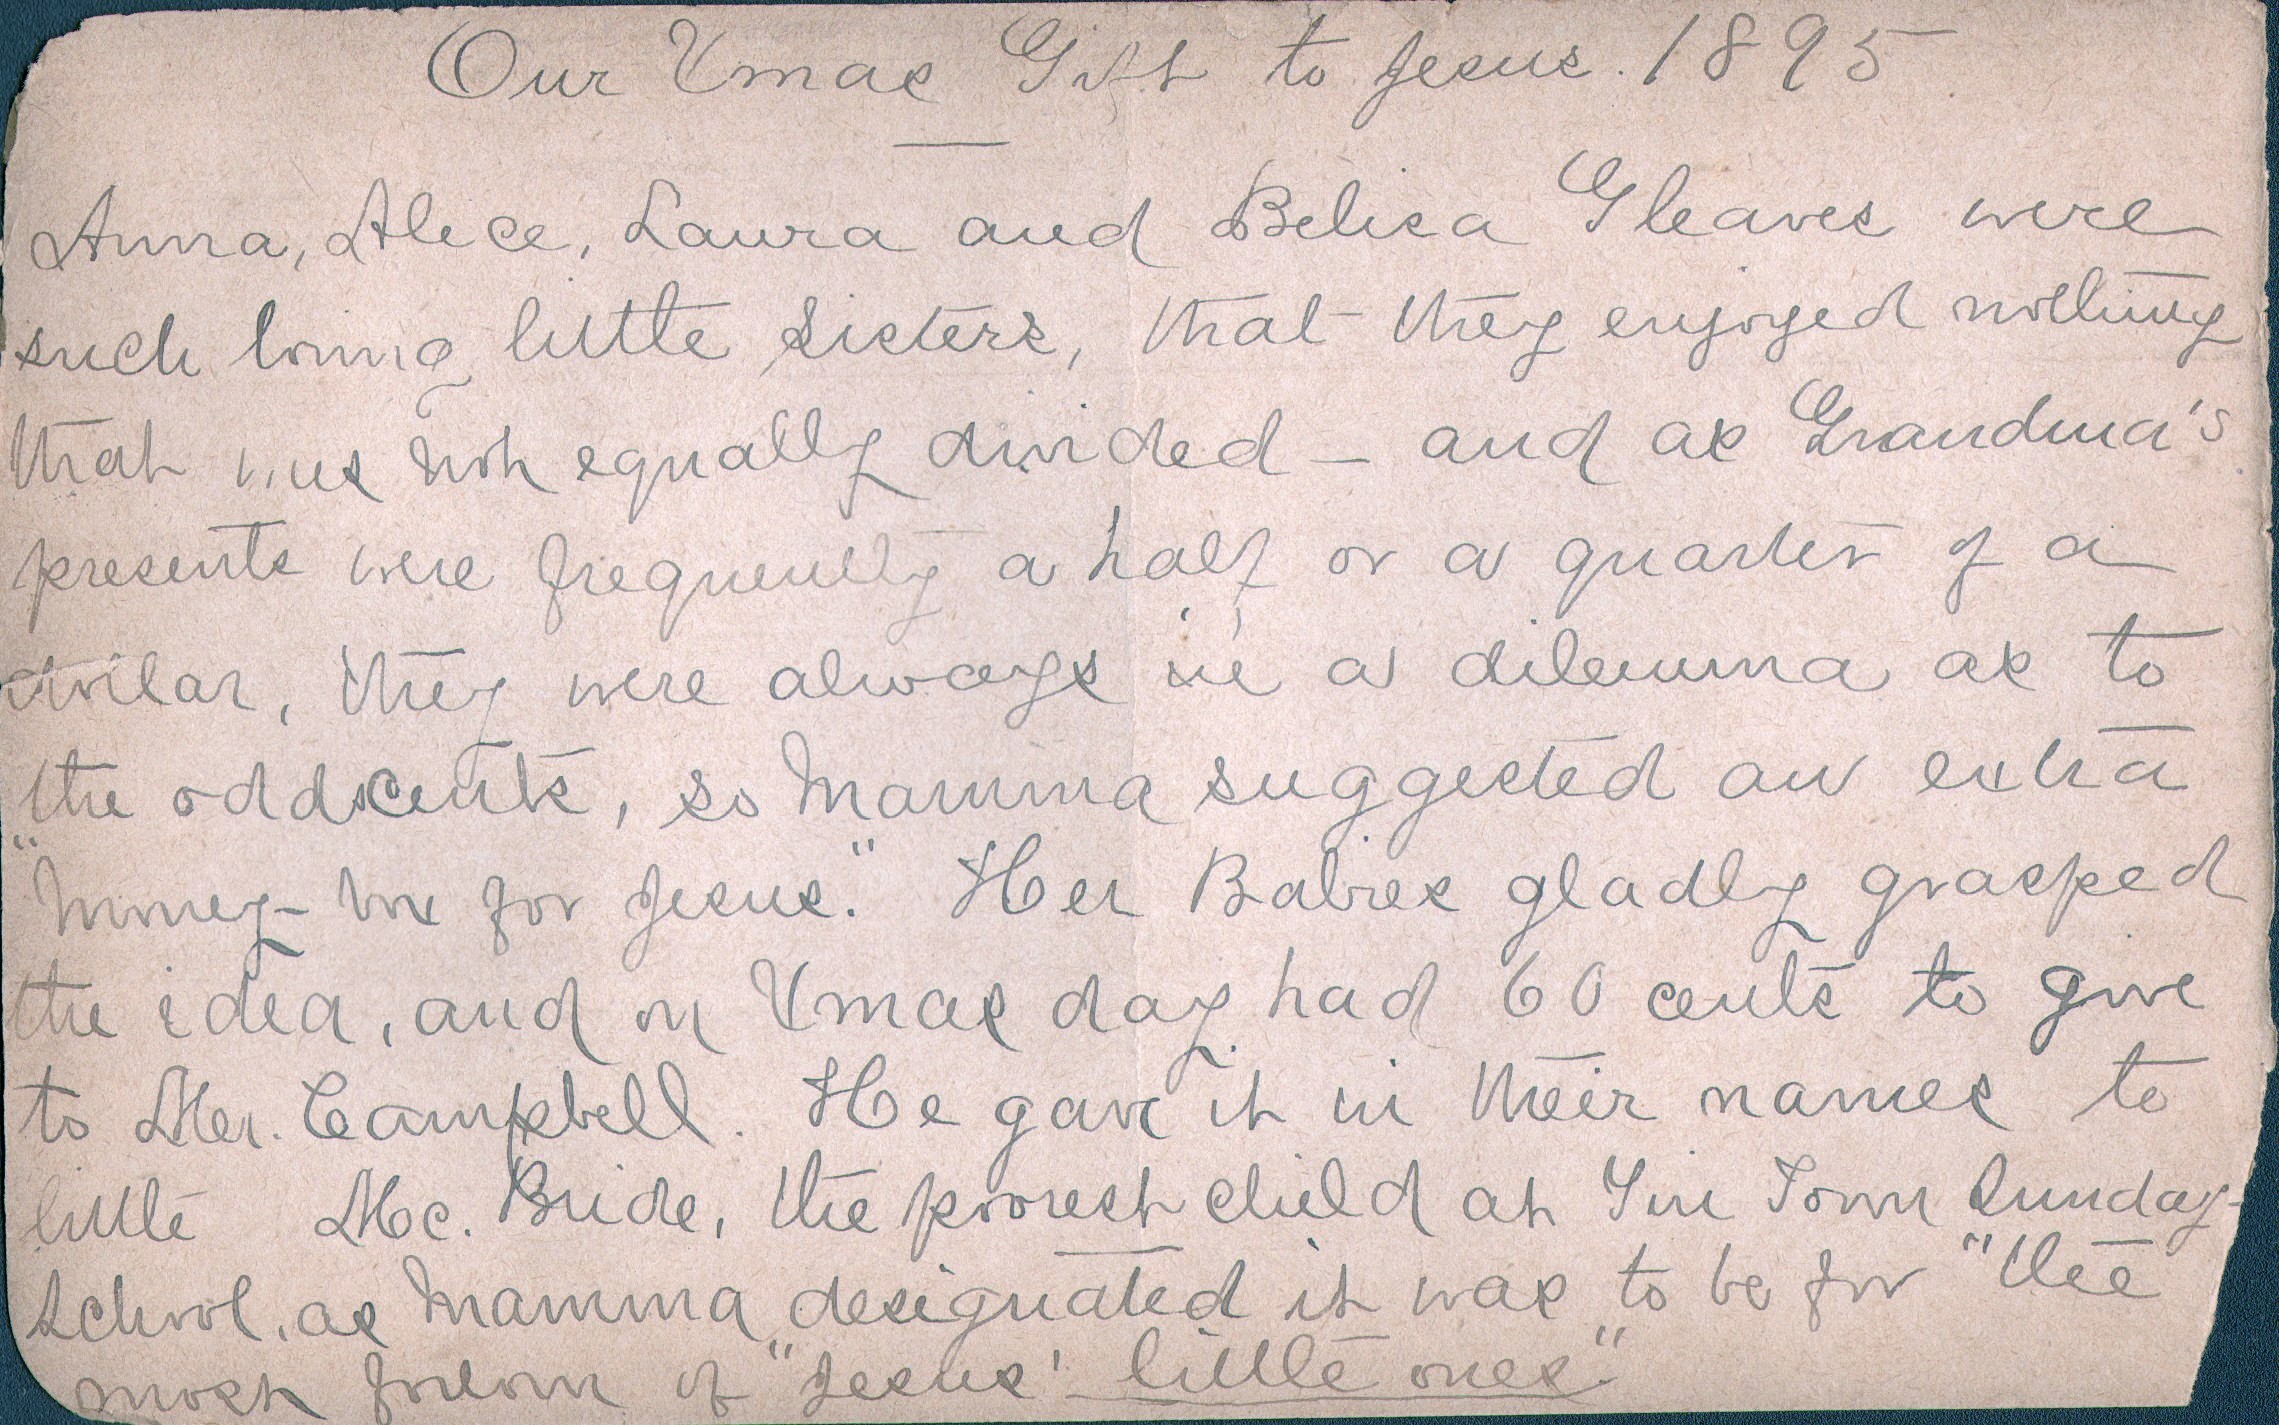 Our Xmas Gift to Jesus. 1895
Anna, Alice, Laura and Belica Gleaves were
such loving little sisters, that they enjoyed nothing
that was not equally divided — and as Grandma's
presents were frequently a half or a quarter of a
dollar, they were always in a dilemma as to
the odd cents, so Mamma suggested an extra
"Money-box for Jesus." Her Babies gladly grasped
the idea, and on Xmas day had 60 cents to give
to Mr. Campbell. He gave it in their names to
little Mc. Bride, the poorest child at Tin Town Sunday-
School, as Mamma designated it was to be for "the
most forlorn of "Jesus' little ones."